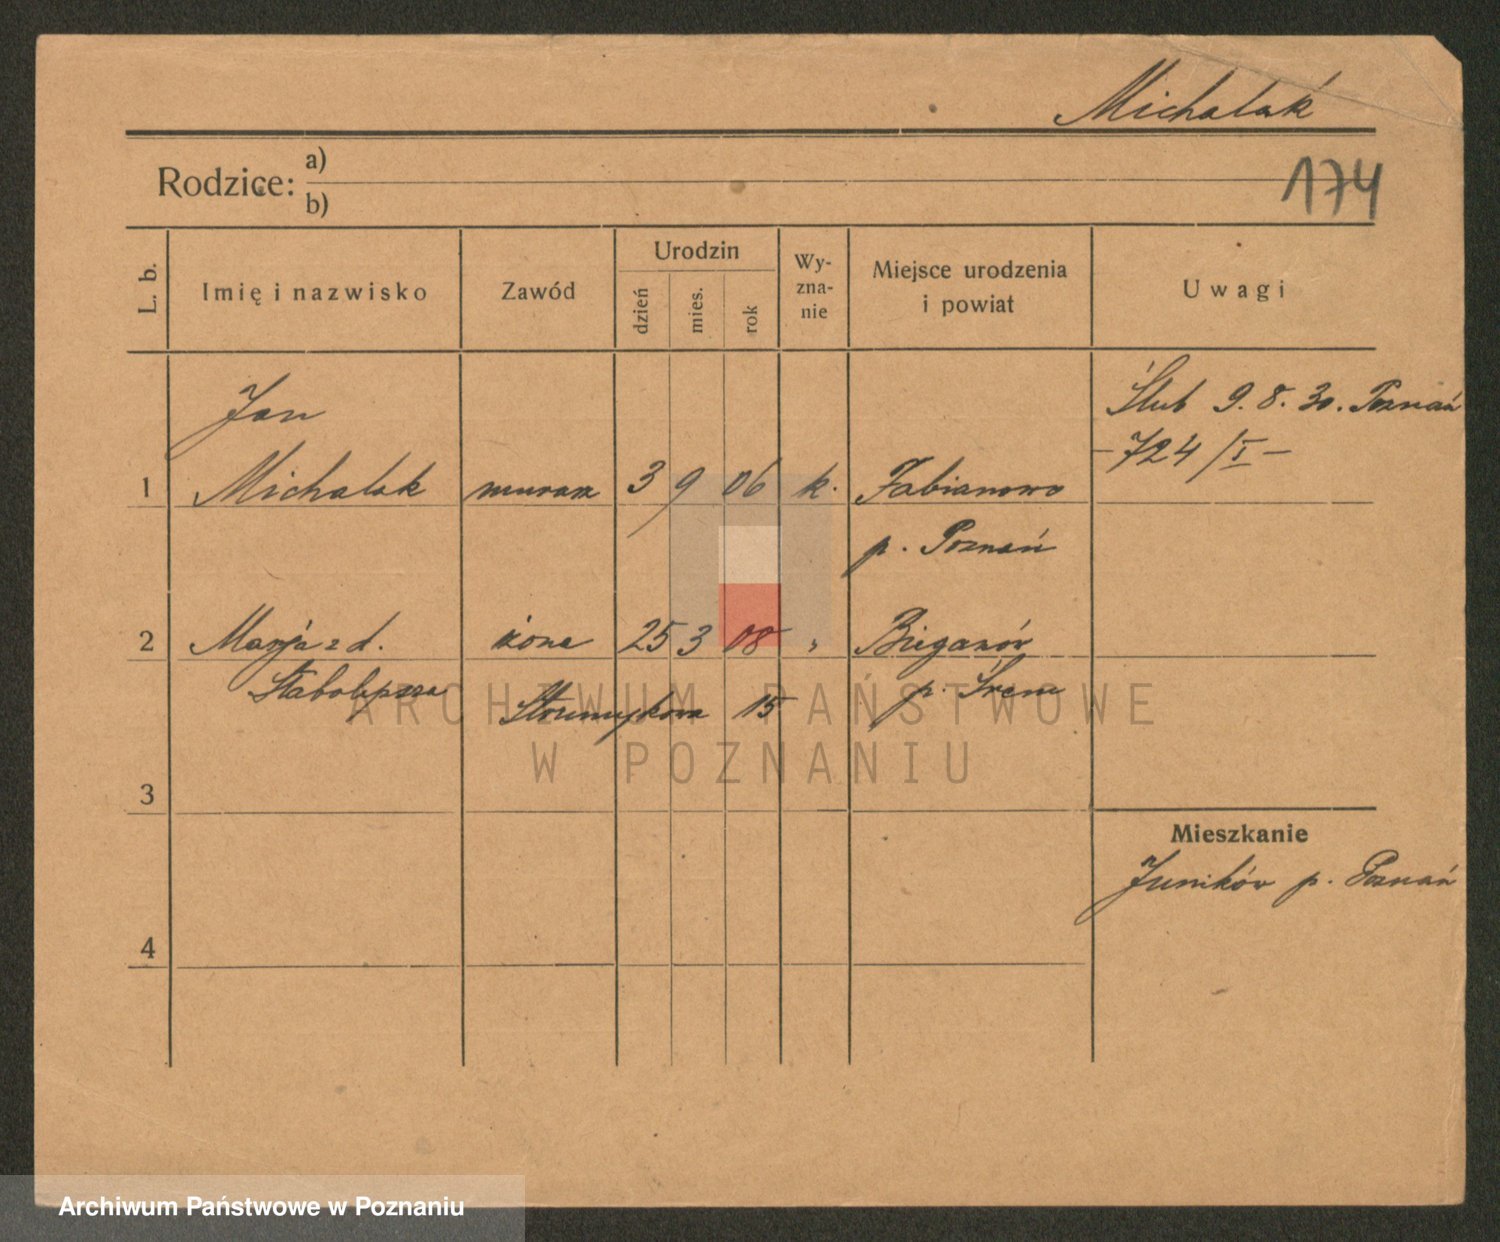 Michalak
174
Rodzice: a)
b)
L. b.
Imię i nazwisko
Zawód
Urodzin
dzień
mies.
rok
Wy-
zna-
nie
Miejsce urodzenia
i powiat
Uwagi
Jan
Ślub 9. 8. 30. Poznań
- 724/I -
1 Michalak murarz 3 9 06 k. Fabianowo
p. Poznań
2 Marja z d. żona 25 3 08 " Bieganów
p. Śrem
15
3
Mieszkanie
Juników p. Poznań
4
ARCHIWUM PAŃSTWOWE
W POZNANIU
Archiwum Państwowe w Poznaniu